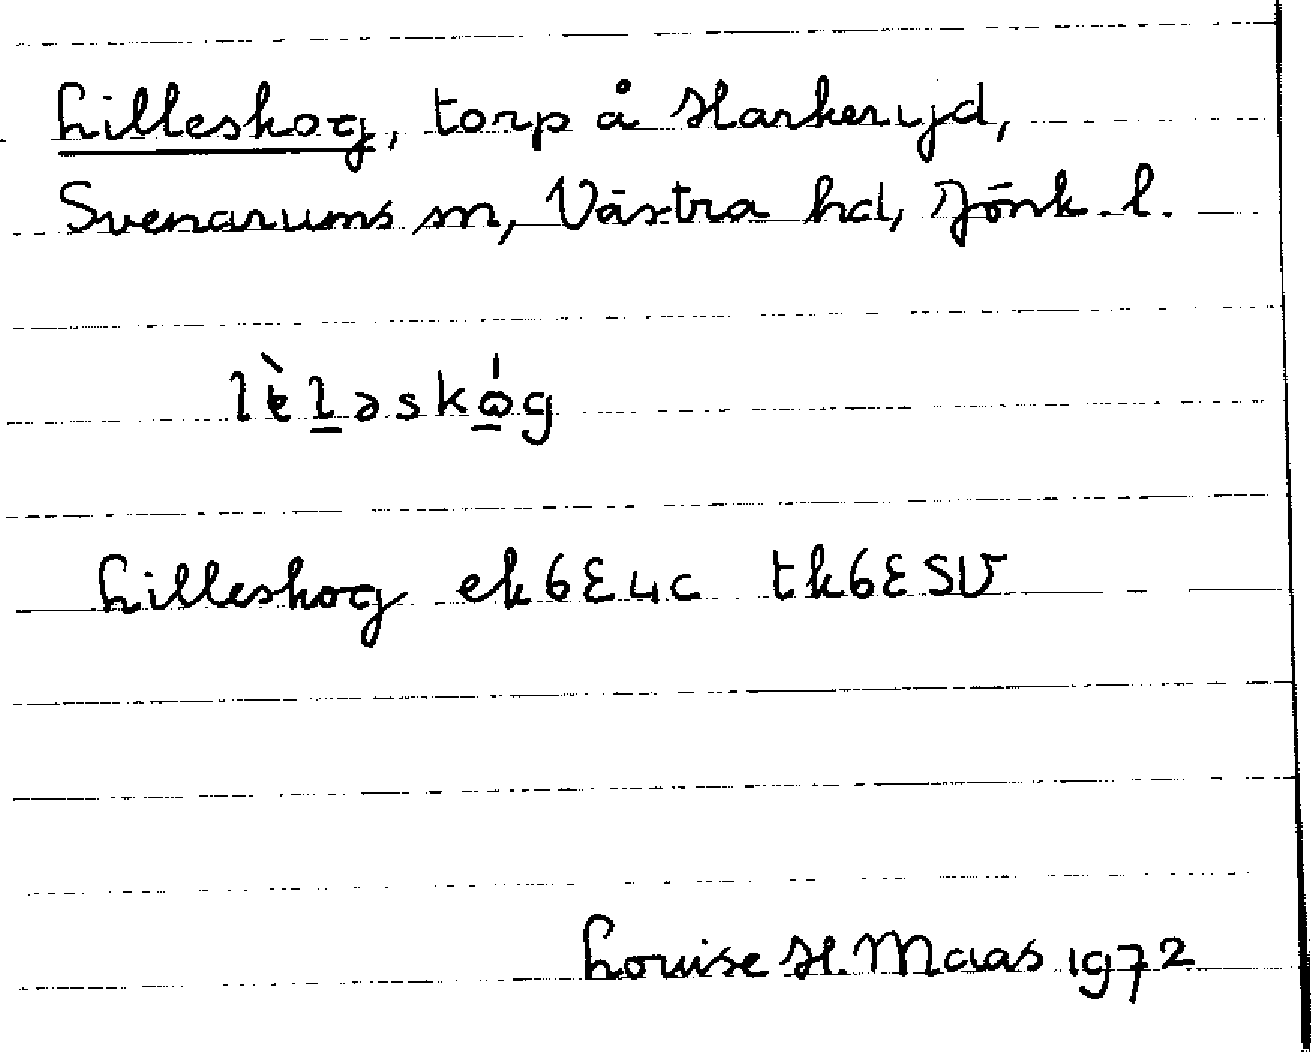 Lilleskog, torp å Harkeryd,
Svenarums sn, Västra hd, Jönk. l.
Lilleskog ek6E4c tk6ESV
Louise H. Maas 1972